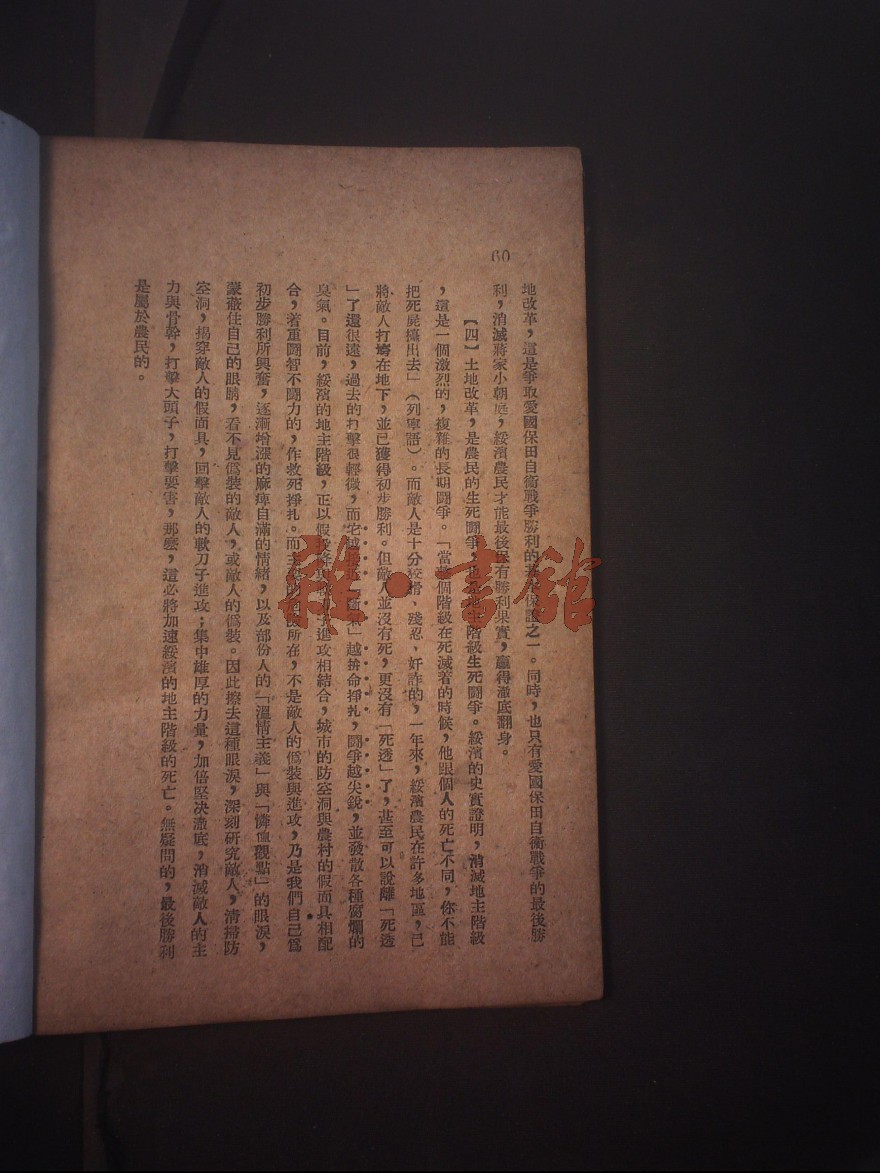 60
地改革，這是爭取愛國保田自衛戰爭勝利的基本保證之一。同時，也只有愛國保田自衛戰爭的最後勝
利，消滅蔣家小朝庭，綏濱農民才能最後保有勝利果實，贏得澈底翻身。
【四】土地改革，是農民的生死鬪爭，也是地主階級生死鬪爭。綏濱的史實證明，消滅地主階級
，這是一個激烈的，複雜的長期鬪爭。「當舊個階級在死滅着的時候，他跟個人的死亡不同，你不能
把死屍擡出去」（列寧語）。而敵人是十分狡猾、殘忍、奸詐的，一年來，綏濱農民在許多地區，已
將敵人打垮在地下，並已獲得初步勝利。但敵人並沒有死，更沒有「死透」了，甚至可以說離「死透
」了還很遠，過去的打擊很輕微，而它越接近「斷氣」越拚命掙扎，鬪爭越尖銳，並發散各種腐爛的
臭氣。目前，綏濱的地主階級，正以假投降與軟刀子進攻相結合，城市的防空洞與農村的假面具相配
合，着重鬪智不鬪力的，作救死掙扎。而主要的危險所在，不是敵人的僞裝與進攻，乃是我們自己爲
初步勝利所興奮，逐漸增漲的麻痺自滿的情緒，以及部份人的「溫情主義」與「憐恤觀點」的眼淚，
蒙蔽住自己的眼睛，看不見僞裝的敵人，或敵人的僞裝。因此擦去這種眼淚，深刻研究敵人，清掃防
空洞，揭穿敵人的假面具，回擊敵人的軟刀子進攻；集中雄厚的力量，加倍堅决澈底，消滅敵人的主
力與骨幹，打擊大頭子，打擊要害，那麽，這必將加速綏濱的地主階級的死亡。無疑問的，最後勝利
是屬於農民的。
雜·書館